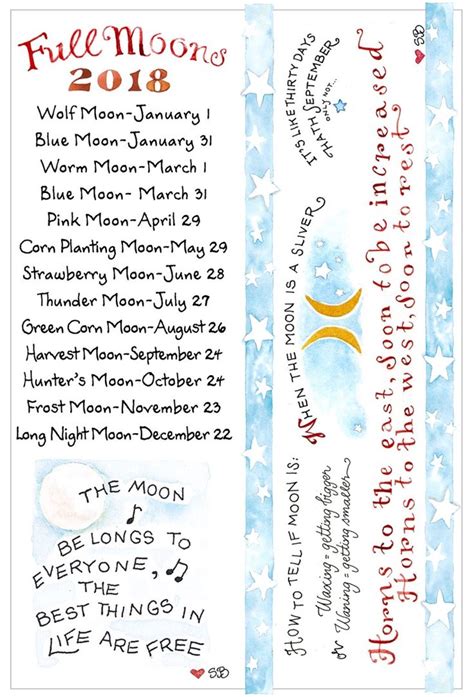 Full Moons
2018
Wolf Moon-January 1
Blue Moon-January 31
Worm Moon-March 1
Blue Moon- March 31
Pink Moon-April 29
Corn Planting Moon-May 29
Strawberry Moon-June 28
Thunder Moon-July 27
Green Corn Moon-August 26
Harvest Moon-September 24
Hunter's Moon-October 24
Frost Moon-November 23
Long Night Moon-December 22
THE MOON
BELONGS TO
EVERYONE,
THE
BEST THINGS IN
LIFE ARE FREE
SB
HOW TO TELL IF MOON IS:
Waxing = getting bigger
or Waning = getting smaller
WHEN THE MOON IS A SLIVER
IT'S LIKE THIRTY DAYS
HATH SEPTEMBER
ONLY NOT...
Horns to the east, Soon to be increased
Horns to the west, Soon to rest
SB